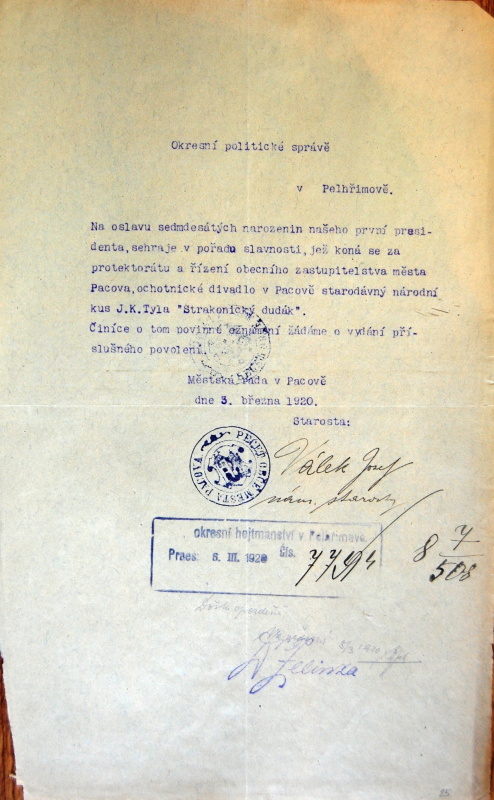 Okresní politické správě
v Pelhřimově.
Na oslavu sedmdesátých narozenin našeho první presi-
denta,sehraje v pořadu slavnosti, jež koná se za
protektorátu a řízení obecního zastupitelstva města
Pacova,ochotnické divadlo v Pacově starodávný národní
kus J.K.Tyla "Strakonický dudák".
Činíce o tom povinné oznámení žádáme o vydání pří-
slušného povolení.
Městská rada v Pacově
dne 3. března 1920.
Starosta:
PEČEŤ OBCE MĚSTA PACOVA
Válek Josef
nám. starosty
okresní hejtmanství v Pelhřimově.
Praes: 5. III. 1920 Čís.
8 7/508
25